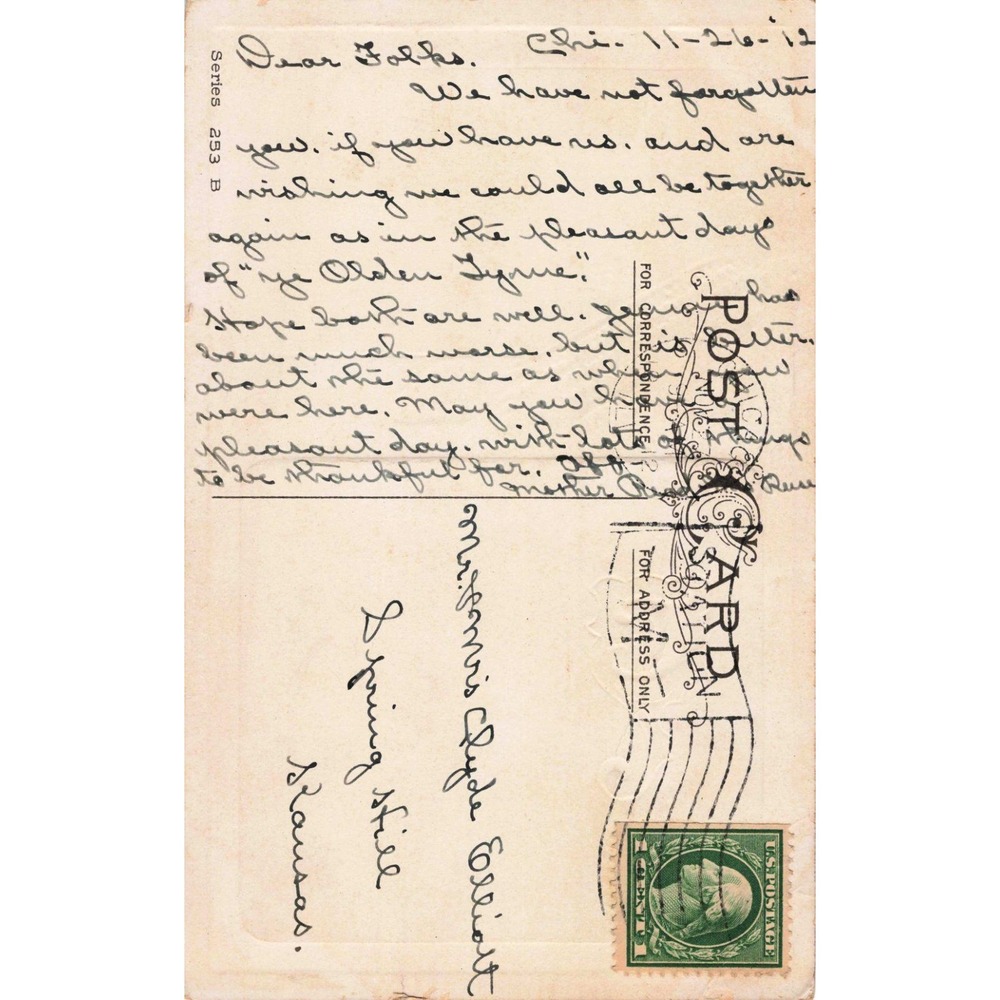 Chi- 11-26-'12
Dear Folks.
We have not forgotten
you. if you have us. and are
wishing we could all be together
again as in the pleasant days
of "ye Olden Tyme".
Hope both are well. has
been much worse. but is better.
about the same as when you
were here. May you have a
pleasant day. with lots of things
to be thankful for.
Mother
Series 253 B
POST CARD
FOR CORRESPONDENCE
FOR ADDRESS ONLY
Clyde Elliott
Spring Hill
Kansas.
U.S. POSTAGE
1 CENT 1